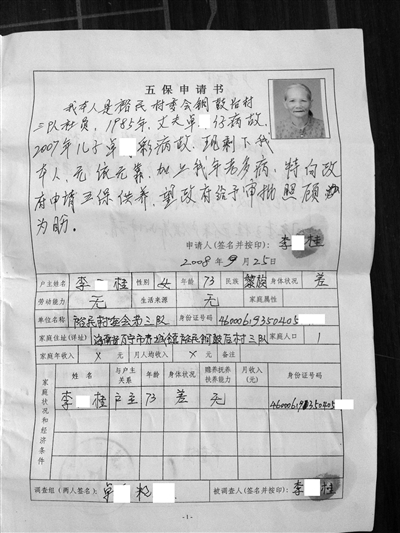 五保申请书
我本人是裕民村委会铜鼓后村
三队社员，1985年，丈夫卓 仔病故，
2007年儿子卓 彩病故，现剩下我
本人，无依无靠，加上我年老多病，特向政
府申请五保供养，望政府给予审批照顾
为盼。
申请人(签名并按印)：李 桂
2008年9月25日
户主姓名 李 桂 性别 女 年龄 73 民族 黎族 身体状况 差
劳动能力 无 生活来源 无 家庭属性
单位名称 裕民村委会第三队 身份证号码 46000619350405
家庭住址(详址) 海南省万宁市 裕民铜鼓后村三队 家庭人口 1
家庭年收入 × 元 月人均收入 × 元 备注
家庭状况和经济条件
姓名 与户主关系 年龄 身体状况 赡养抚养扶养能力 月收入(元) 身份证号码
李 桂 户主 73 差 无 46000619350405
调查组(两人签名)： 卓 被调查人(签名并按印)：李 桂
-1-